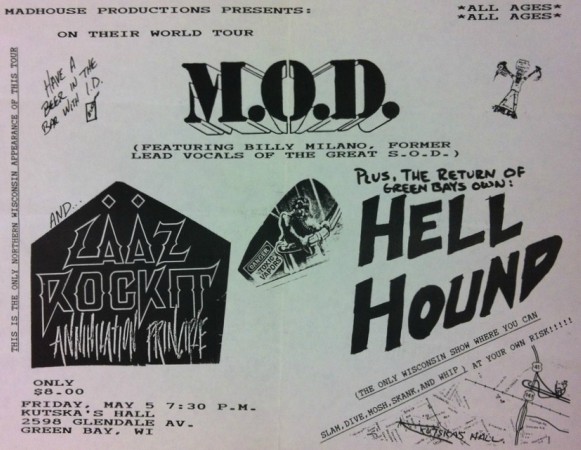 MADHOUSE PRODUCTIONS PRESENTS:
*ALL AGES*
*ALL AGES*
ON THEIR WORLD TOUR
HAVE A
BEER IN THE
BAR WITH I.D.
M.O.D.
(FEATURING BILLY MILANO, FORMER
LEAD VOCALS OF THE GREAT S.O.D.)
THIS IS THE ONLY NORTHERN WISCONSIN APPEARANCE OF THIS TOUR
AND...
LÄÄZ
ROCKIT
ANNIHILATION PRINCIPLE
DANGER
TOXIC
VAPORS
PLUS, THE RETURN OF
GREEN BAYS OWN:
HELL
HOUND
(THE ONLY WISCONSIN SHOW WHERE YOU CAN
SLAM,DIVE,MOSH,SKANK,AND WHIP IT AT YOUR OWN RISK!!!!!
ONLY
$8.00
FRIDAY, MAY 5 7:30 P.M.
KUTSKA'S HALL
2598 GLENDALE AV.
GREEN BAY, WI
KUTSKAS HALL